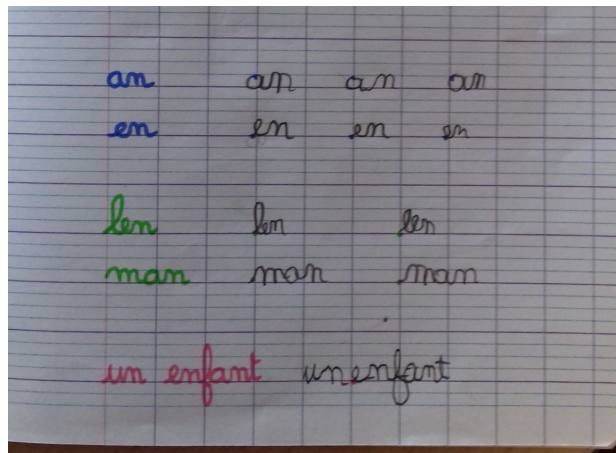 an an an an
en en en en
len len len
man man man
un enfant unenfant